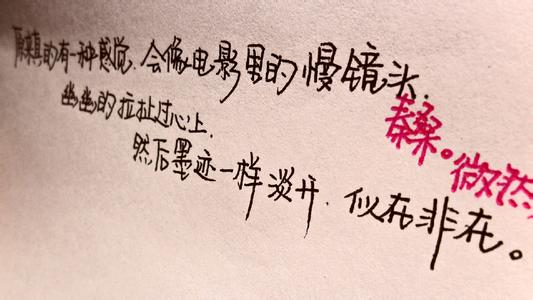 原来真的有一种感觉.会像电影里的慢镜头.
幽幽的拉扯过心上.
然后墨迹一样淡开.似在非在。
秦桑。微然